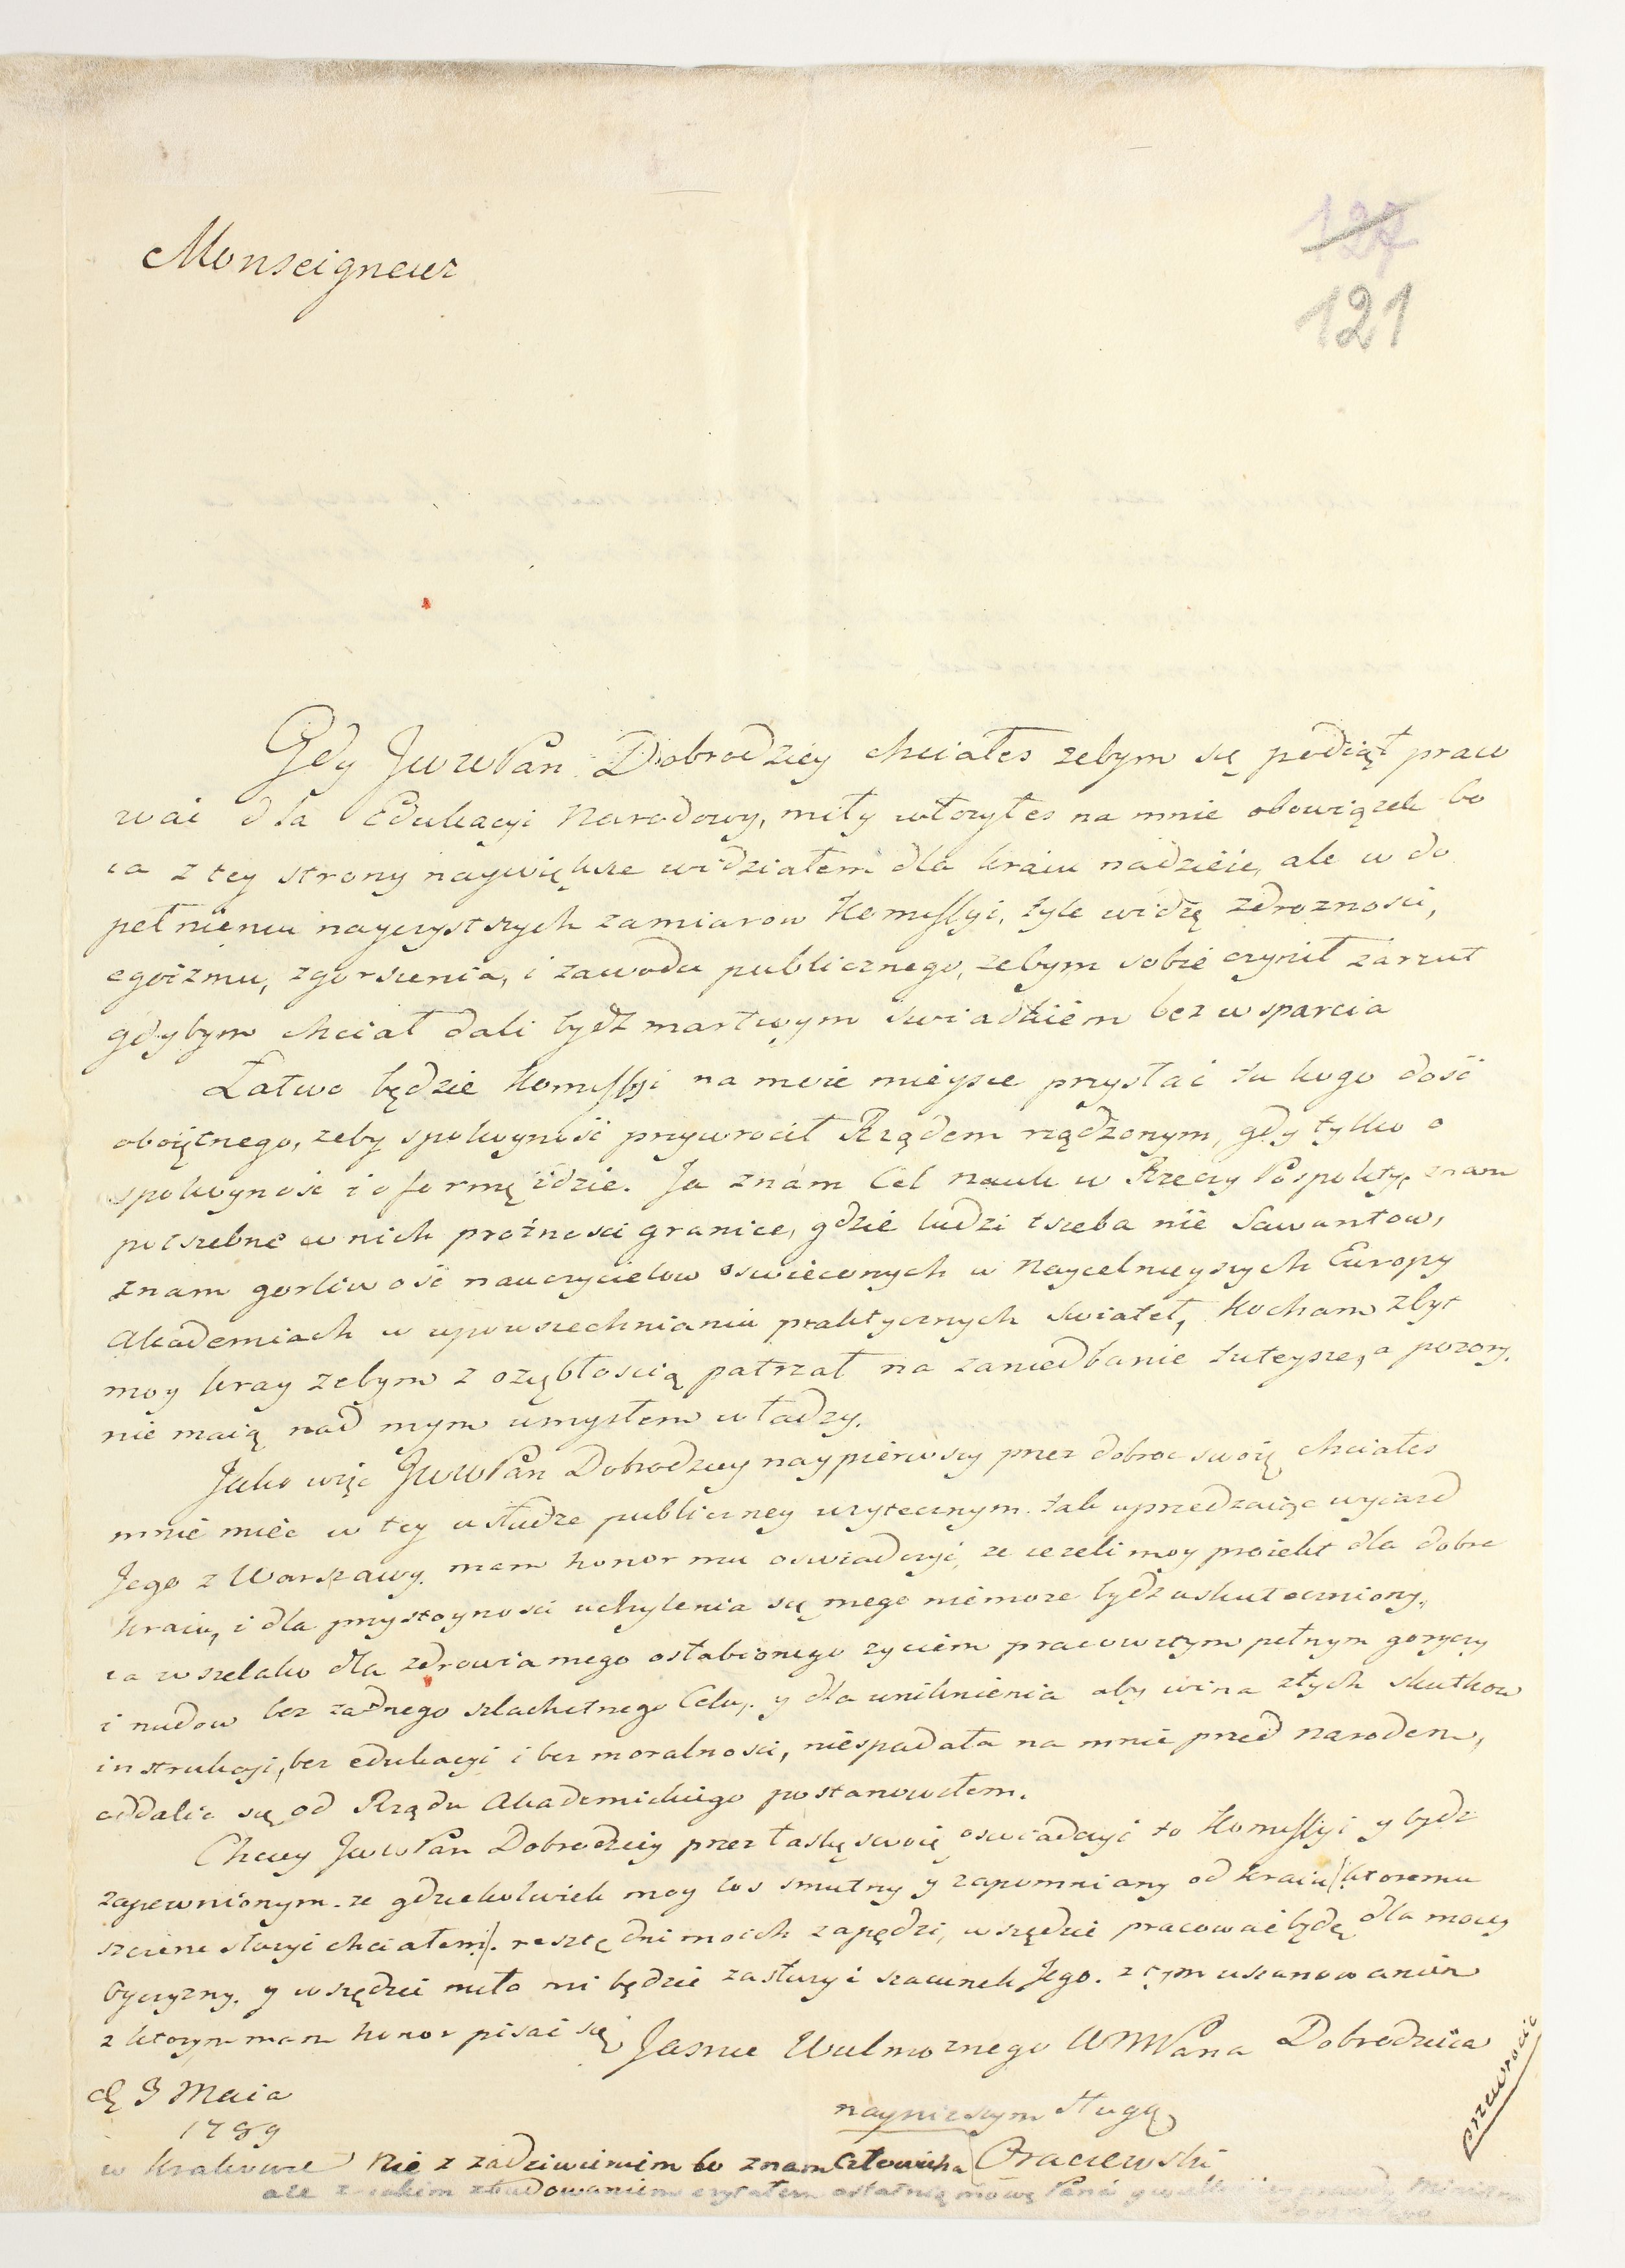 127
121
Monseigneur
Gdy JWWPan Dobrodziey chciałes zebym się podiął praco
wać dla Edukacyi Narodowy, miły włozyłes na mnie obowiązek bo
ia z tey strony naywiększe widziałem dla kraiu nadzieie, ale w do
pełnieniu nayczystszych zamiarow Komissyi, tyle widzę zdroznosci,
egoizmu, zgorszenia, i zawodu publicznego, zebym sobie czynił zarzut
gdybym chciał dali bydź martwym swiadkiem bez wsparcia
Łatwo będzie Komissyi na moie mieysce przysłać tu kogo dość
oboiętnego, zeby spokoyność przywrocił Rządem rządzonym, gdy tylko o
spokoyność i o formę idzie. Ja znam Cel nauk w Rzeczy Pospolity, znam
potrzebne w nich prożnosci granice, gdzie ludzi trzeba nie Sawantow,
znam gorliwość nauczycielow oswieconych w Naycelnieyszych Europy
Akademiach w upowszechnianiu praktycznych swiateł, kocham zbyt
moy kray zebym z ozębłoscią patrzał na zaniedbanie tuteysze, a pozory
nie maią nad mym umysłem władzy.
Jako więc JWWPan Dobrodziey naypierwszy przez dobroc swoię chciałes
mnie miec w tey usłudze publiczney uzytecznym. tak uprzedzaiąc wyiazd
Jego z Warszawy. mam honor mu oswiadczyć, ze iezeli moy proiekt dla dobra
kraiu, i dla przystoynosci uchylenia się mego niemoze bydź uskuteczniony,
ia wszelako dla zdrowia mego osłabionego zyciem pracowitym pełnym goryczy
i nudow bez zadnego szlachetnego Celu, y dla uniknienia aby wina złych skutkow
instrukcyi, bez edukacyi i bez moralnosci, niespadała na mnie przed narodem,
oddalic się od Rządu Akademickiego postanowiłem.
Chciey JWWPan Dobrodziey przez łaskę swoię oswiadczyć to Komissyi y bydz
zapewnionym. ze gdziekolwiek moy los smutny y zapomniany od kraiu (ktoremu
szczerze słuzyć chciałem). resztę dni moich zapędzi, wszędzie pracować będę dla moiey
Oyczyzny. y wszędzie miło mi będzie zasłuzyć szacunek Jego. z tym uszanowaniem
z ktorym mam honor pisać się Jasnie Wielmoznego WMPana Dobrodzieia
d 3 Maia
1789
w Krakowie
nayniszym sługą
Oraczewski
przewrocić
Nie z zadziwieniem bo znam Człowieka
ale z iakim zbudowaniem czytałem ostatnię mowę Pana